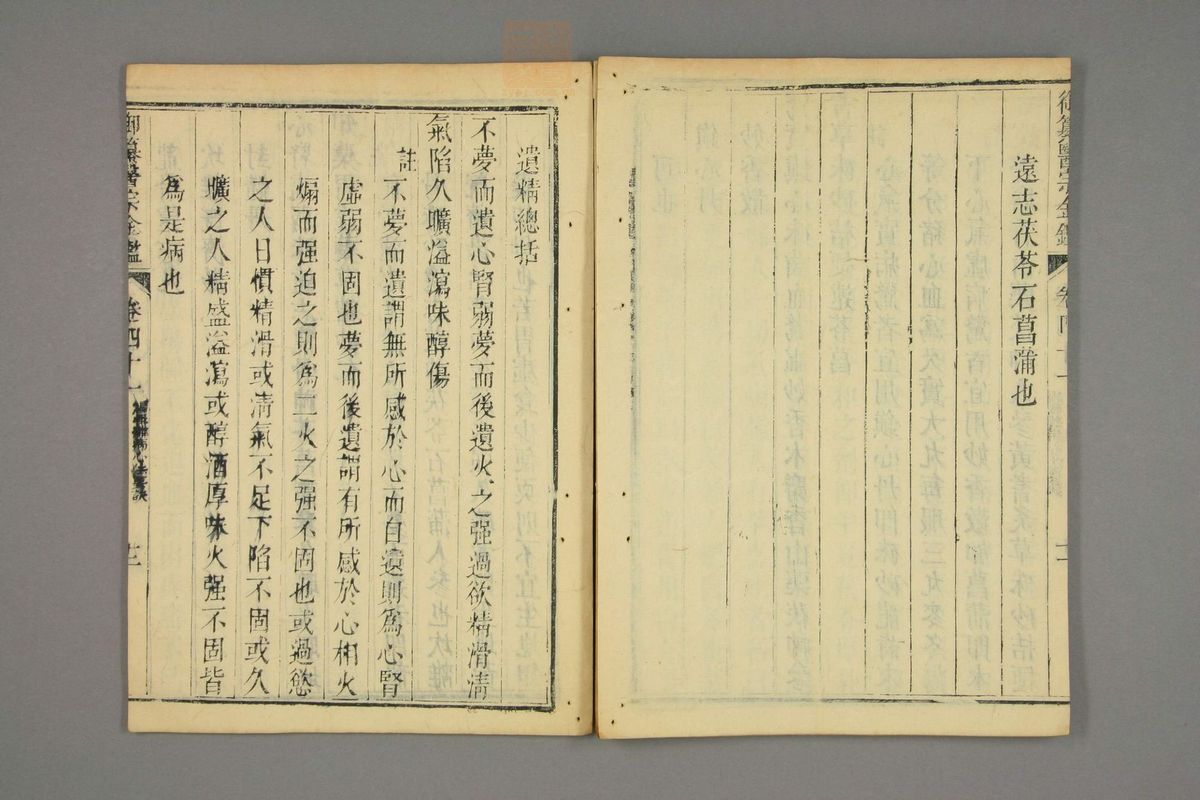 御纂醫宗金鑑
卷四十一
十二
遠志茯苓石菖蒲也
遺精總括
不夢而遺心腎弱夢而後遺火之强過欲精滑清
氣陷久曠溢瀉味醇傷
註
不夢而遺謂無所感於心而自遺則爲心腎
虛弱不固也夢而後遺謂有所感於心相火
煽而强迫之則爲二火之强不固也或過慾
之人日慣精滑或清氣不足下陷不固或久
曠之人精盛溢瀉或醇酒厚味火强不固皆
爲是病也
御纂醫宗金鑑
卷四十一
十三